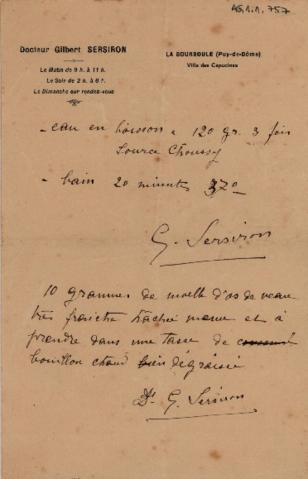 AG.1.1.757
Docteur Gilbert SERSIRON
Le Matin de 9 h. à 11 h.
Le Soir de 2 h. à 6 h.
Le Dimanche sur rendez-vous
LA BOURBOULE (Puy-de-Dôme)
Villa des Capucines
- eau en boisson 120 gr. 3 fois
Source Choussy
- bain 20 minutes 37°
G. Sersiron
10 grammes de moelle d'os de veau
très fraîche hachée menue et à
prendre dans une tasse de
bouillon chaud bien dégraissé
Dr G. Sersiron